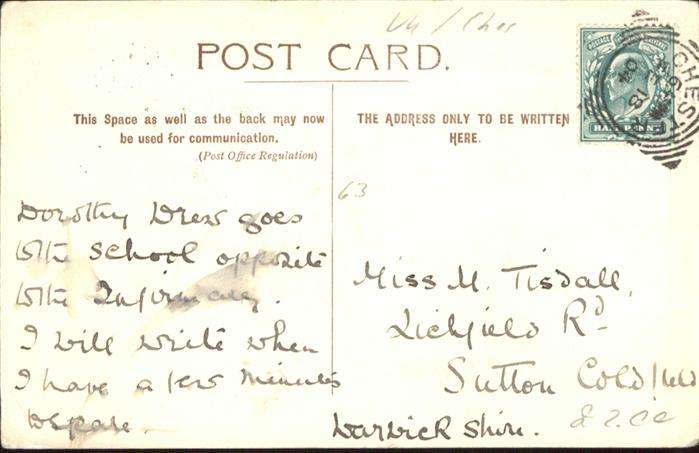 POST CARD.
This Space as well as the back may now
be used for communication.
(Post Office Regulation)
THE ADDRESS ONLY TO BE WRITTEN
HERE.
POSTAGE REVENUE
HALFPENNY
CHESTER
63
Dorothy Drew goes
to the school opposite
to the Infirmary.
I will write when
I have a few minutes
to spare.
Miss M. Tisdall,
Lichfield Rd
Sutton Coldfield
Warwick Shire.